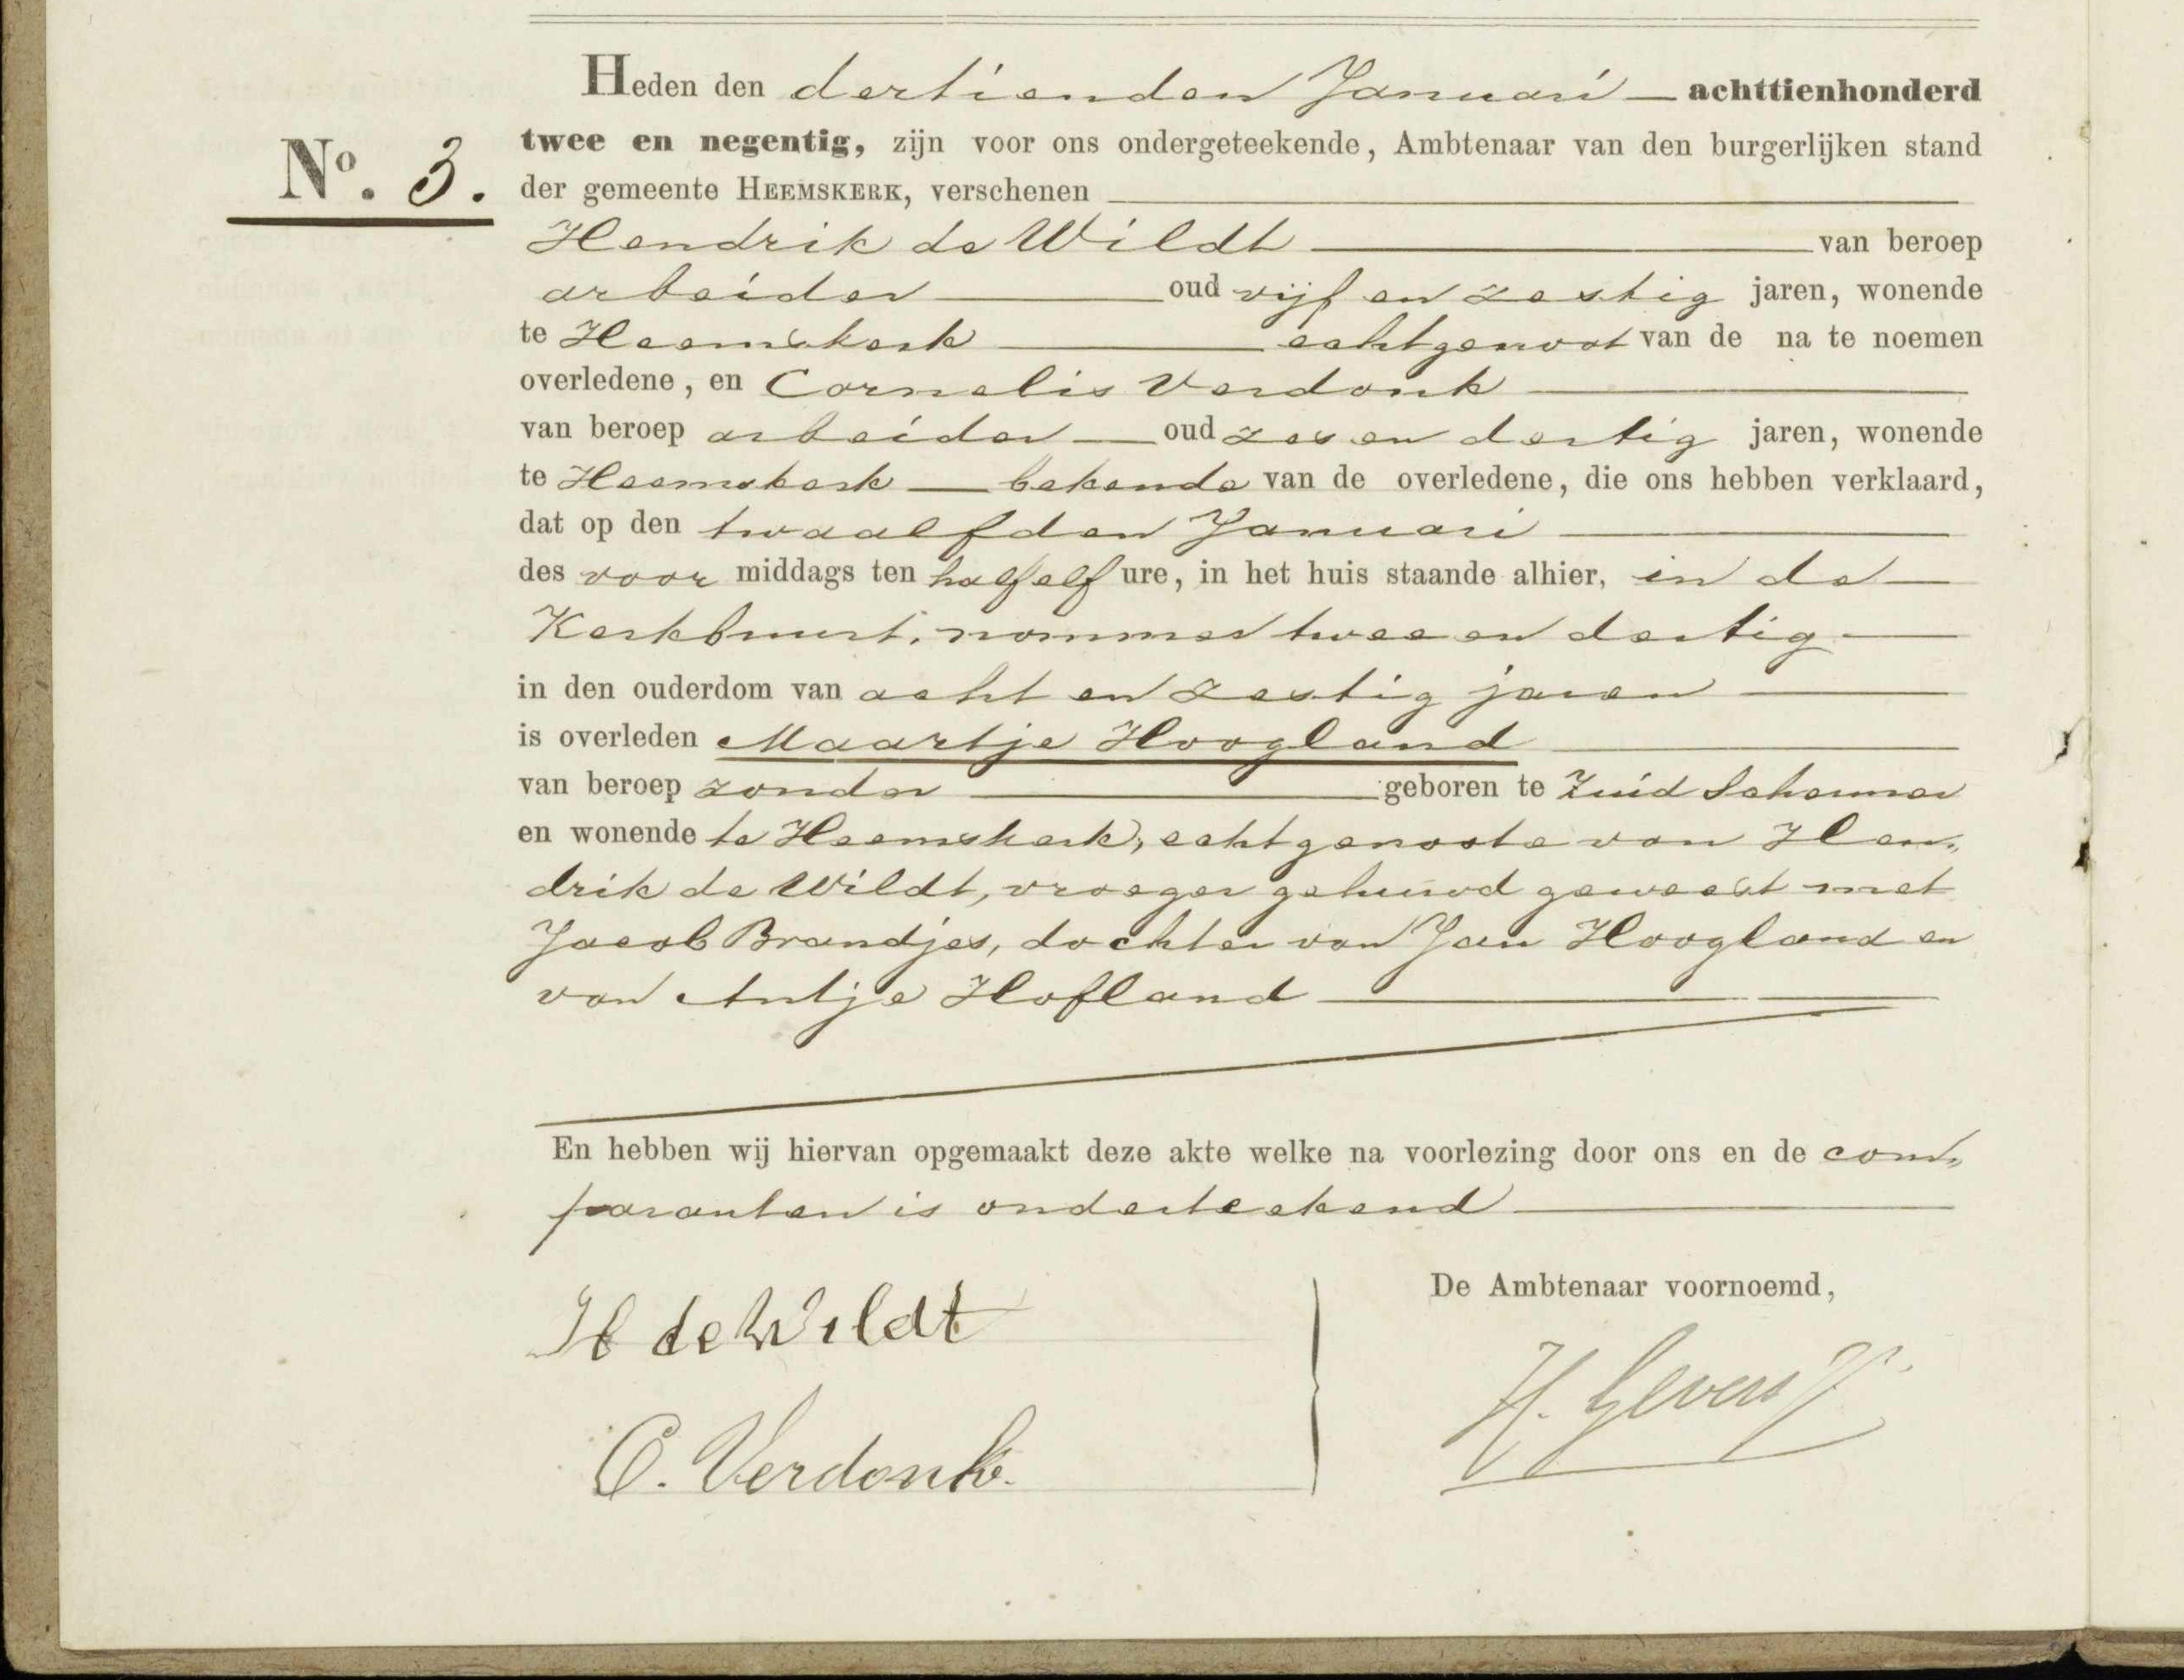 Heden den dertienden Januari — achttienhonderd
twee en negentig, zijn voor ons ondergeteekende, Ambtenaar van den burgerlijken stand
No. 3. der gemeente HEEMSKERK, verschenen
Hendrik de Wildt van beroep
arbeider oud vijf en zestig jaren, wonende
te Heemskerk echtgenoot van de na te noemen
overledene, en Cornelis Verdonk
van beroep arbeider oud zes en dertig jaren, wonende
te Heemskerk bekende van de overledene, die ons hebben verklaard,
dat op den twaalfden Januari
des voor middags ten half elf ure, in het huis staande alhier, in de
Kerkbuurt, nommer twee en dertig
in den ouderdom van acht en zestig jaren
is overleden Maartje Hoogland
van beroep zonder geboren te Zuid Schermer
en wonende te Heemskerk, echtgenoote van Hen„
drik de Wildt, vroeger gehuwd geweest met
Jacob Brandjes, dochter van Jan Hoogland en
van Antje Hofland
En hebben wij hiervan opgemaakt deze akte welke na voorlezing door ons en de com„
paranten is onderteekend
De Ambtenaar voornoemd,
H de Wildt
H. Gevers
C. Verdonk.